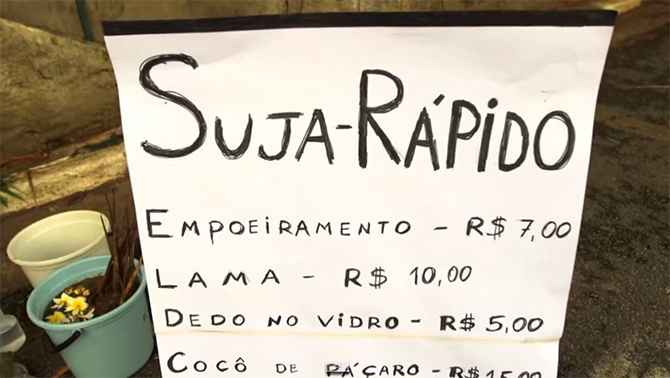 SUJA-RÁPIDO
EMPOEIRAMENTO - R$ 7,00
LAMA - R$ 10,00
DEDO NO VIDRO - R$ 5,00
COCÔ DE PÁÇARO - R$ 15,00